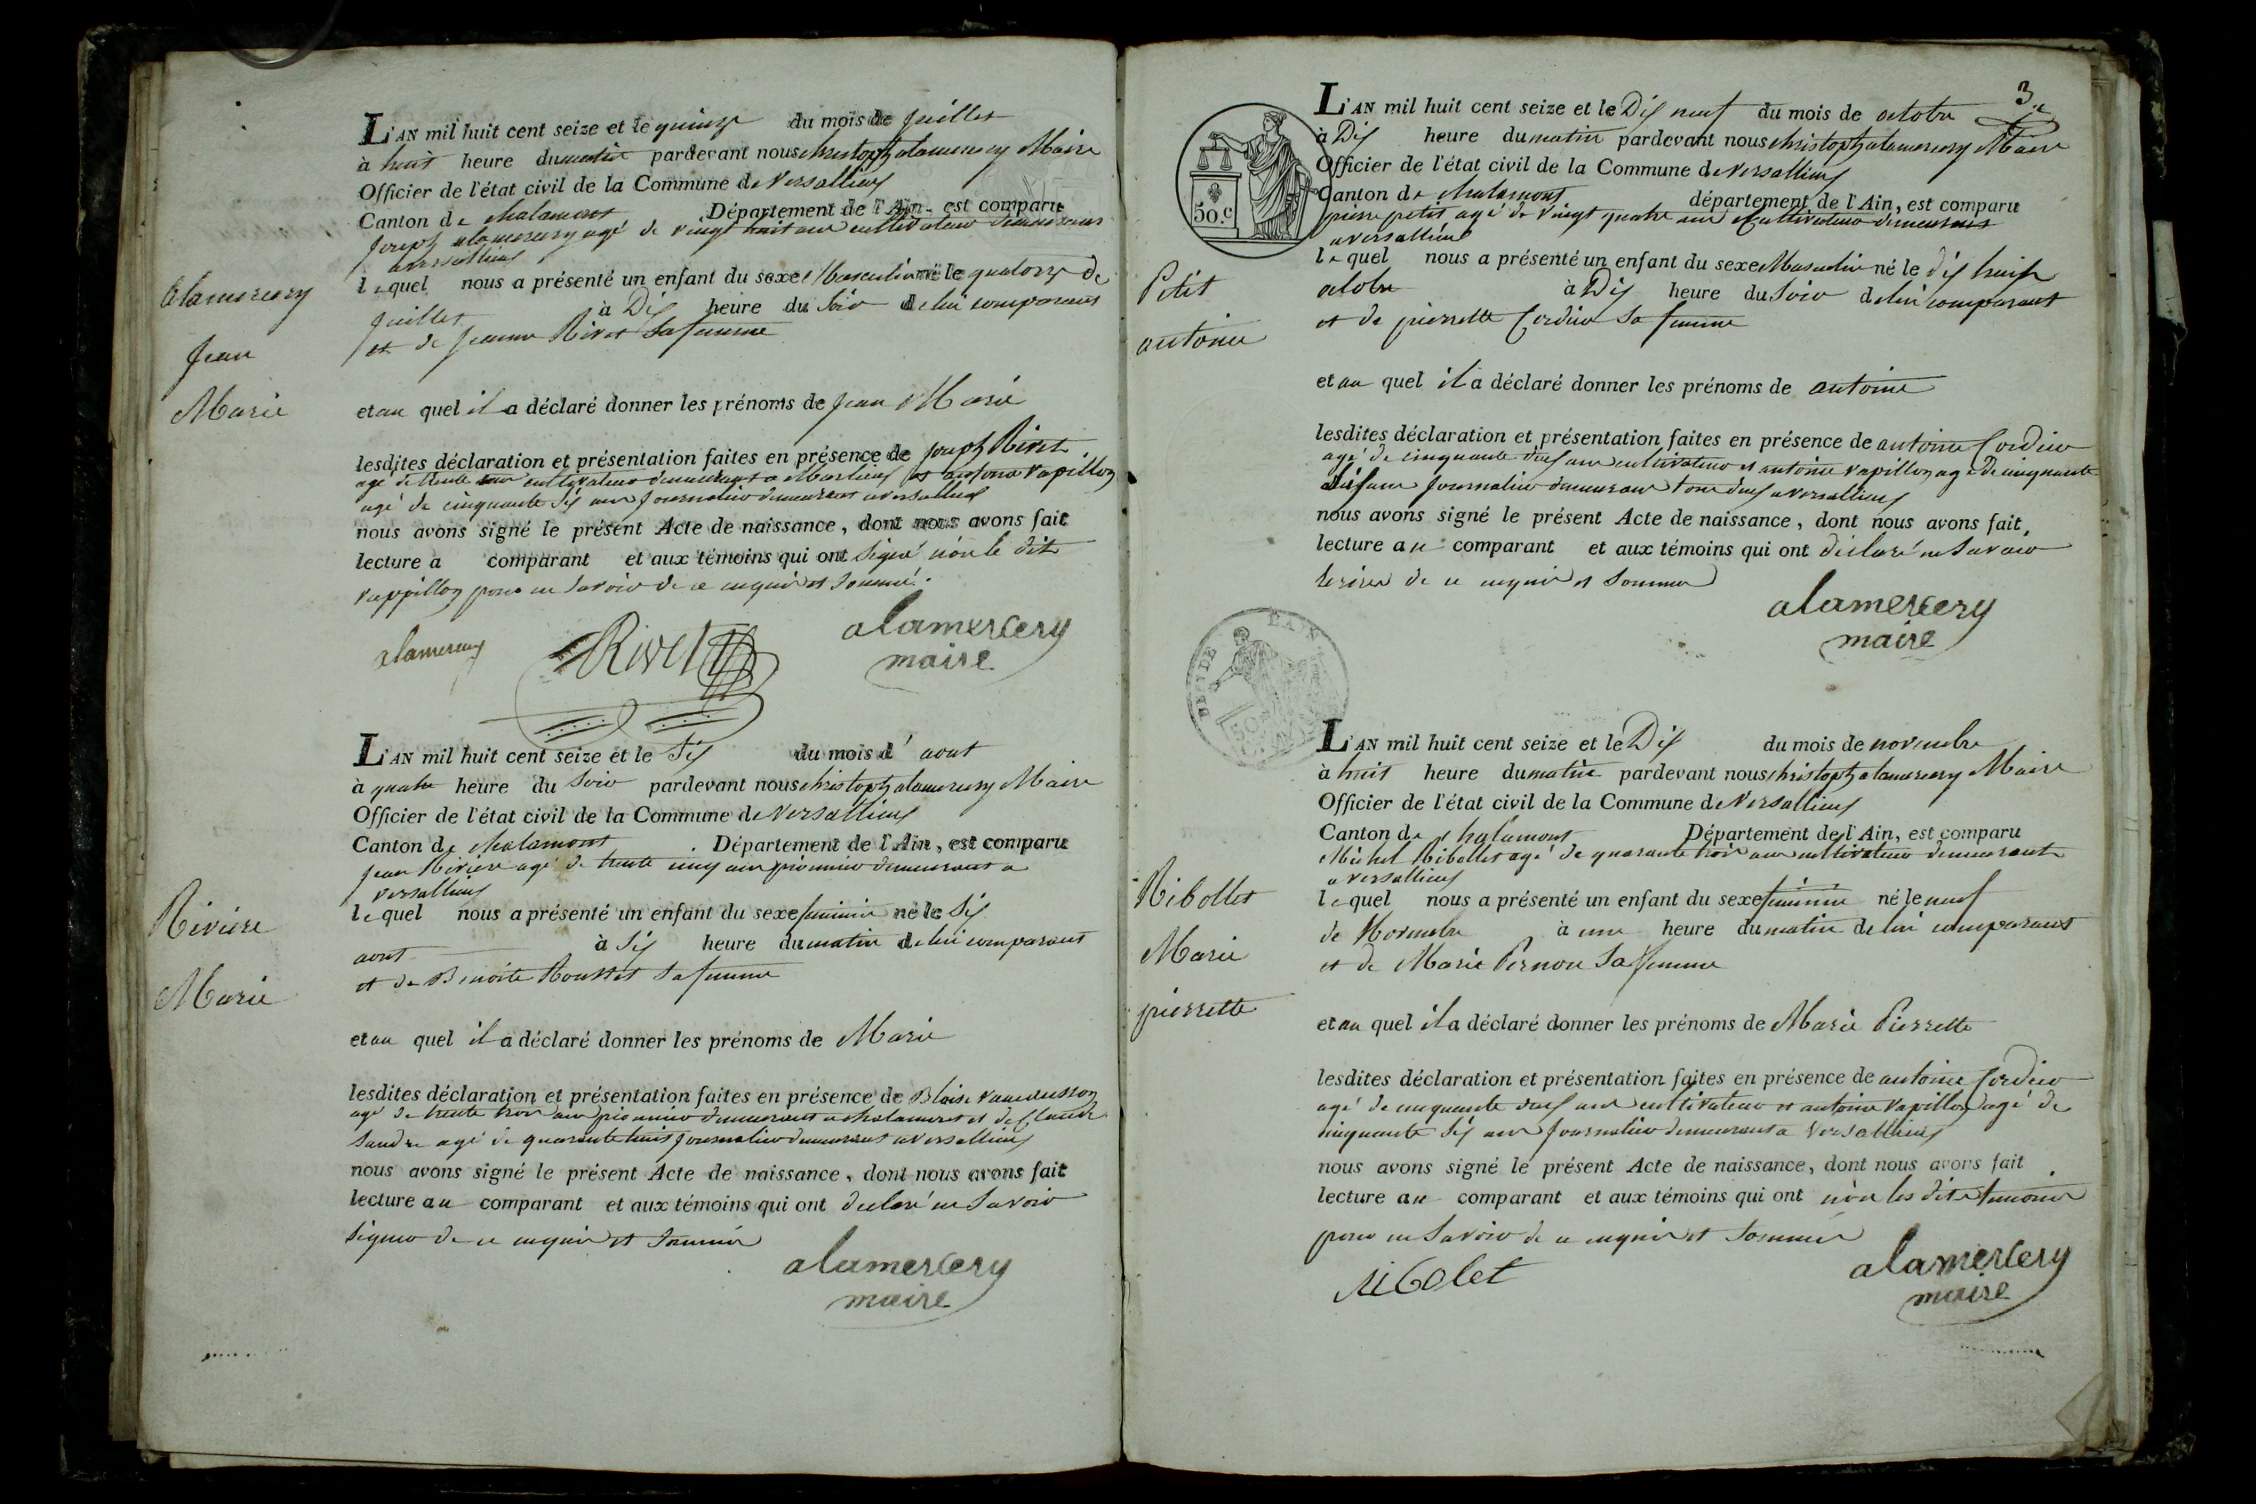 L'AN mil huit cent seize et le quinze du mois de juillet
à huit heure du matin pardevant nous christoph alamercery Maire
Officier de l'état civil de la Commune de versallieux
Canton de chalamont Département de l'Ain, est comparu
joseph alamercery agé de vingt huit ans cultivateur demeurant
a versallieux
alamercery
jean
Marie
lequel nous a présenté un enfant du sexe Masculin né le quatorze de
juillet à Dix heure du soir de lui comparant
et de jeanne Rivet sa femme
et au quel il a déclaré donner les prénoms de jean Marie
lesdites déclaration et présentation faites en présence de joseph Rivet
agé de trente ans cultivateur demeurant a Marlieux et antoine vapillon
agé de cinquante six ans journalier demeurant a versallieux
nous avons signé le présent Acte de naissance, dont nous avons fait
lecture a comparant et aux témoins qui ont signé non le dit
vappillon pour ne savoir de ce enquis et sommé.
alamercery Rivet alamercery
maire
L'AN mil huit cent seize et le six du mois d'aout
à quatre heure du soir pardevant nous christoph alamercery Maire
Officier de l'état civil de la Commune de versallieux
Canton de chalamont. Département de l'Ain, est comparu
jean Rivière agé de trente cinq ans pionnier demeurant a
versallieux
Rivière
Marie
lequel nous a présenté un enfant du sexe feminin né le six
aout à six heure du matin de lui comparant
et de Benoite Rousset sa femme
et au quel il a déclaré donner les prénoms de Marie
lesdites déclaration et présentation faites en présence de Blaise
agé de trente trois ans pionnier demeurant a chalamont et de Claude
Sandre agé de quarante huit journalier demeurant a versallieux
nous avons signé le présent Acte de naissance, dont nous avons fait
lecture au comparant et aux témoins qui ont declaré ne savoir
signer de ce enquis et sommés
alamercery
maire
3
L'AN mil huit cent seize et le Dix neuf du mois de octobre
à Dix heure du matin pardevant nous christoph alamercery Maire
Officier de l'état civil de la Commune de versallieux
Canton de chalamont département de l'Ain, est comparu
pierre petit agé de vingt quatre ans Cultivateur demeurant
a versallieux
50.c
Petit
antoine
lequel nous a présenté un enfant du sexe Masculin né le dix huit
octobre à Dix heure du soir de lui comparant
et de pierrette Cordier sa femme
et au quel il a déclaré donner les prénoms de antoine
lesdites déclaration et présentation faites en présence de antoine Cordier
agé de cinquante deux ans cultivateur et antoine vapillon agé de cinquante
six ans journalier demeurant tous deux a versallieux
nous avons signé le présent Acte de naissance, dont nous avons fait
lecture au comparant et aux témoins qui ont déclaré ne savoir
de ce enquis et sommés
alamercery
maire
DEP. DE L'AIN
L'AN mil huit cent seize et le Dix du mois de novembre
à huit heure du matin pardevant nous christoph alamercery Maire
Officier de l'état civil de la Commune de versallieux
Canton de chalamont Département de l'Ain, est comparu
Michel Ribollet agé de quarante trois ans cultivateur demeurant
a versallieux
Ribollet
Marie
pierrette
lequel nous a présenté un enfant du sexe feminin né le neuf
de Novembre à une heure du matin de lui comparant
et de Marie Pernon sa femme
et au quel il a déclaré donner les prénoms de Marie Pierrette
lesdites déclaration et présentation faites en présence de antoine Cordier
agé de cinquante deux ans cultivateur et antoine vapillon agé de
cinquante six ans journalier demeurant a versallieux
nous avons signé le présent Acte de naissance, dont nous avons fait
lecture au comparant et aux témoins qui ont non les dits temoins
pour ne savoir de ce enquis et sommés
ribolet alamercery
maire